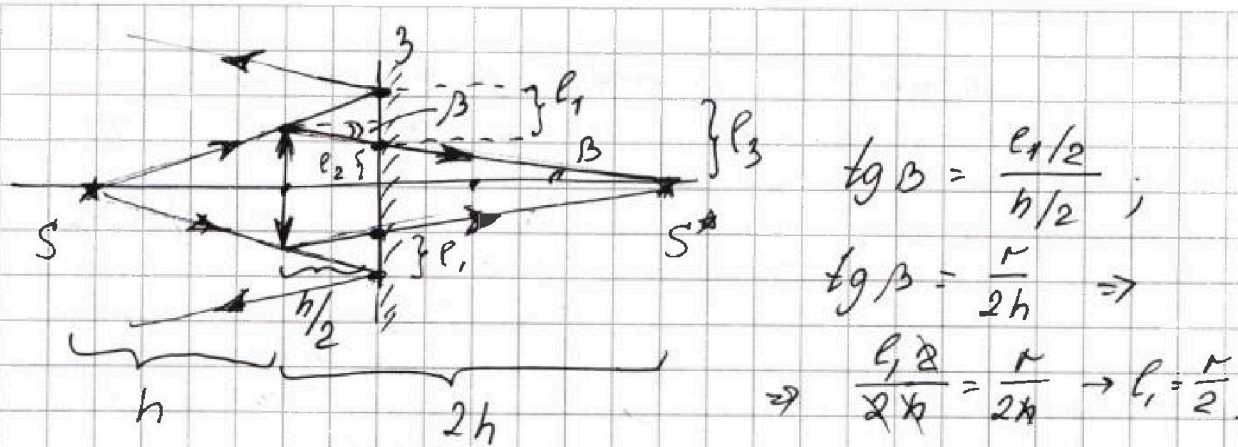 З
} l₁
β
} l₃
l₂ {
β
S
S*
} l₁
h/2
h
2h
tg β = (l₁/2)/(h/2) ;
tg β = r/2h ⇒
⇒ l₁2/2h = r/2h → l₁ = r/2.